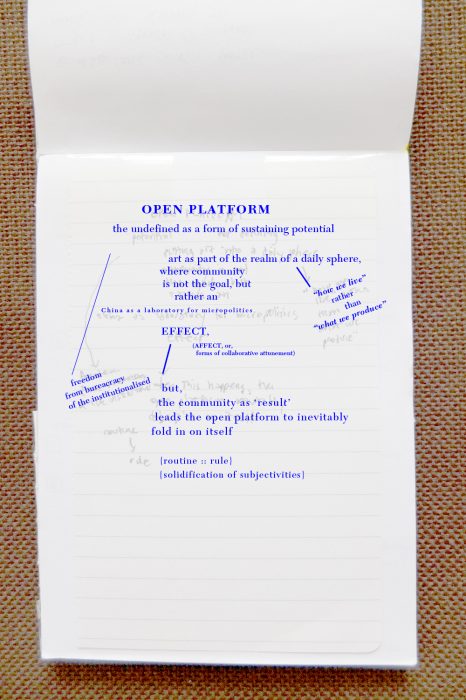 OPEN PLATFORM
the undefined as a form of sustaining potential
art as part of the realm of a daily sphere,
where community
is not the goal, but
rather an
"how we live"
rather
than
"what we produce"
China as a laboratory for micropolitics
EFFECT,
(AFFECT, or,
forms of collaborative attunement)
freedom
from bureacracy
of the institutionalised
This happens,
but,
the community as 'result'
leads the open platform to inevitably
fold in on itself
routine
{routine :: rule}
{solidification of subjectivities}